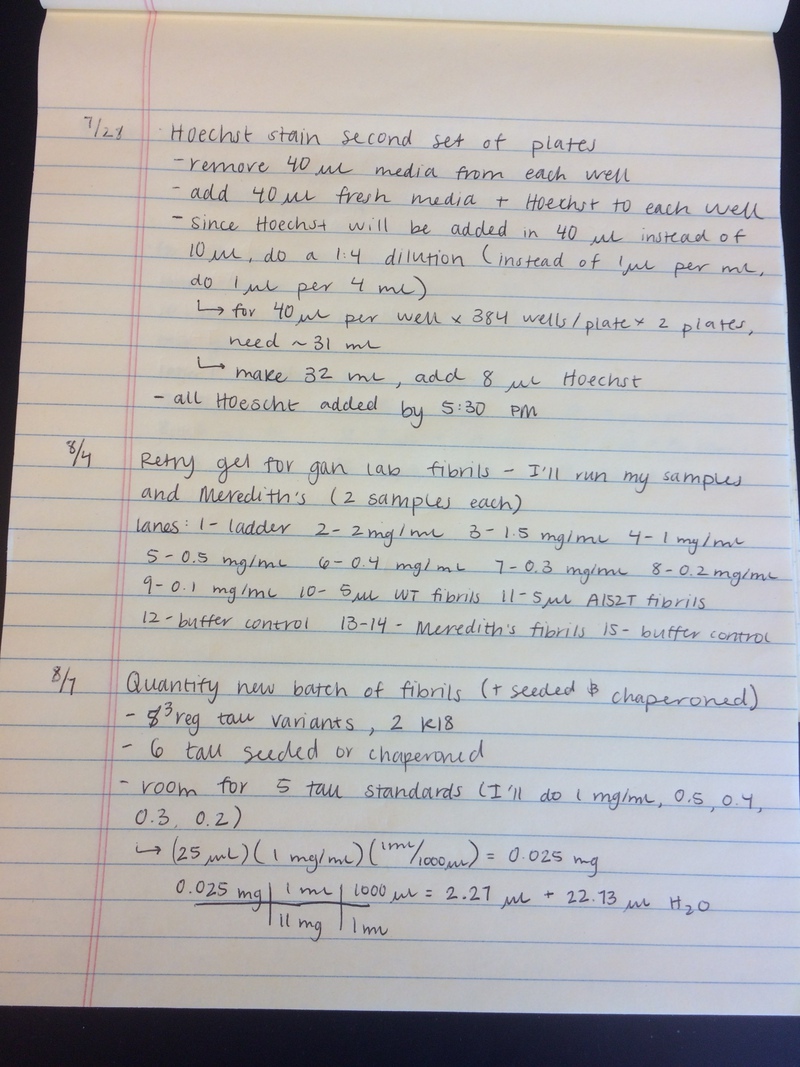 7/28 Hoechst stain second set of plates
- remove 40 µL media from each well
- add 40 µL fresh media + Hoechst to each well
- since Hoechst will be added in 40 µL instead of
10 µL, do a 1:4 dilution (instead of 1 µL per mL,
do 1 µL per 4 mL)
↳ for 40 µL per well x 384 wells/plate x 2 plates,
need ~31 mL
↳ make 32 mL, add 8 µL Hoechst
- all Hoescht added by 5:30 PM
8/4 Retry gel for gan lab fibrils - I'll run my samples
and Meredith's (2 samples each)
lanes: 1- ladder 2- 2 mg/mL 3- 1.5 mg/mL 4- 1 mg/mL
5- 0.5 mg/mL 6- 0.4 mg/mL 7- 0.3 mg/mL 8- 0.2 mg/mL
9- 0.1 mg/mL 10- 5 µL WT fibrils 11- 5 µL A152T fibrils
12- buffer control 13-14 - Meredith's fibrils 15- buffer control
8/7 Quantify new batch of fibrils (+ seeded & chaperoned)
- 3 reg tau variants, 2 K18
- 6 tau seeded or chaperoned
- room for 5 tau standards (I'll do 1 mg/mL, 0.5, 0.4,
0.3, 0.2)
↳ (25 µL)(1 mg/mL)(1mL/1000µL) = 0.025 mg
0.025 mg | 1 mL | 1000 µL = 2.27 µL + 22.73 µL H₂O
| 11 mg | 1 mL